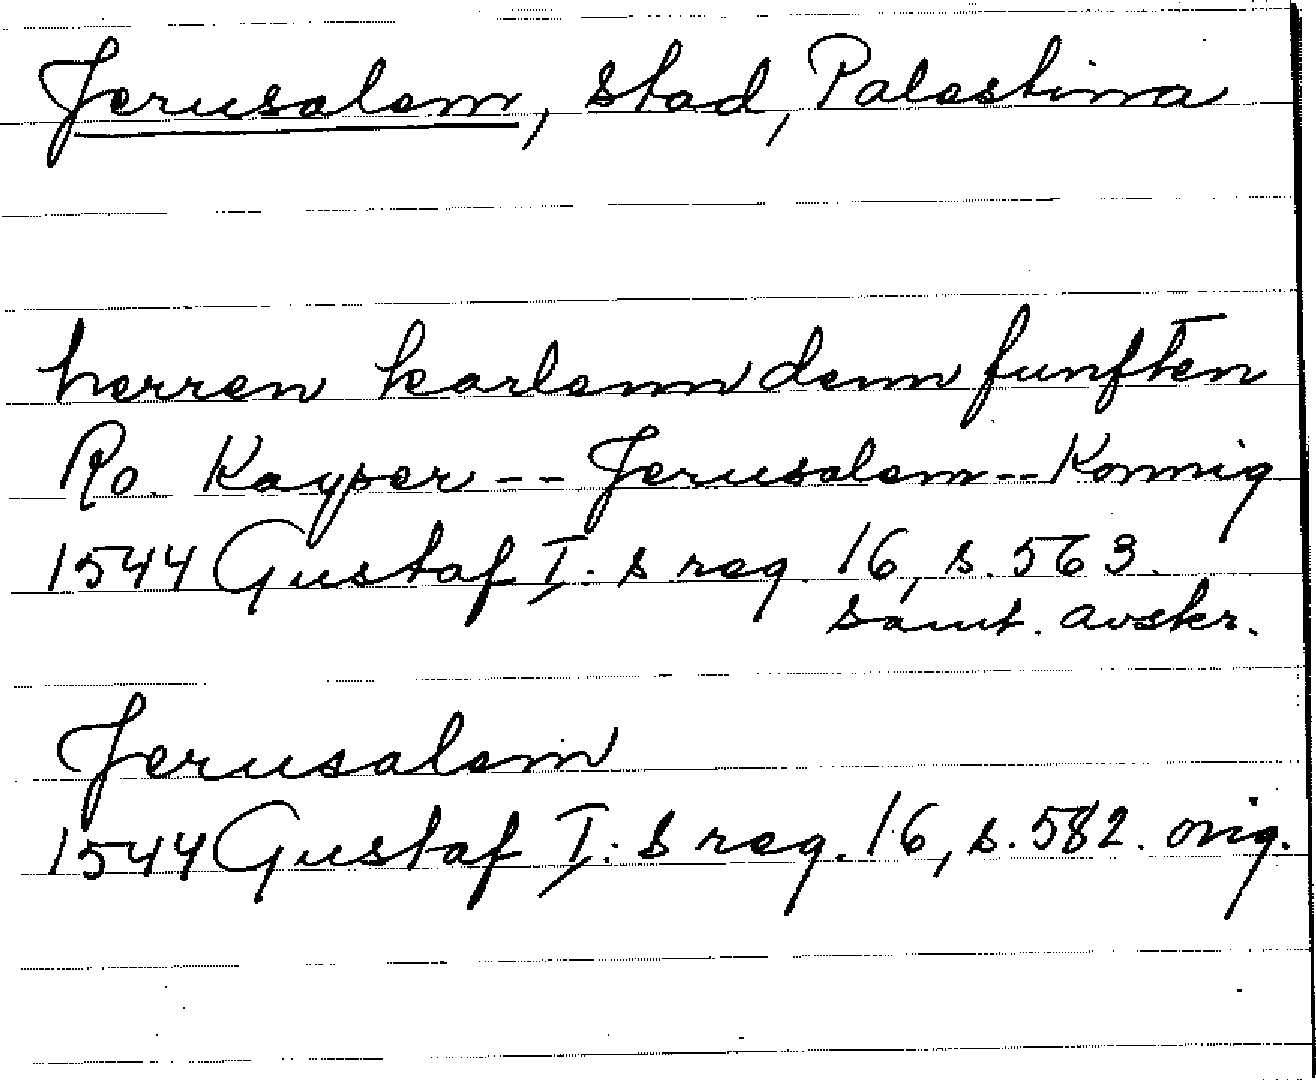 Jerusalem, stad, Palestina
herren karlenn denn funften
Ro. Kayser -- Jerusalem -- Konnig
1544 Gustaf I:s reg. 16, s. 563.
samt. avskr.
Jerusalem
1544 Gustaf I:s reg. 16, s. 582. orig.